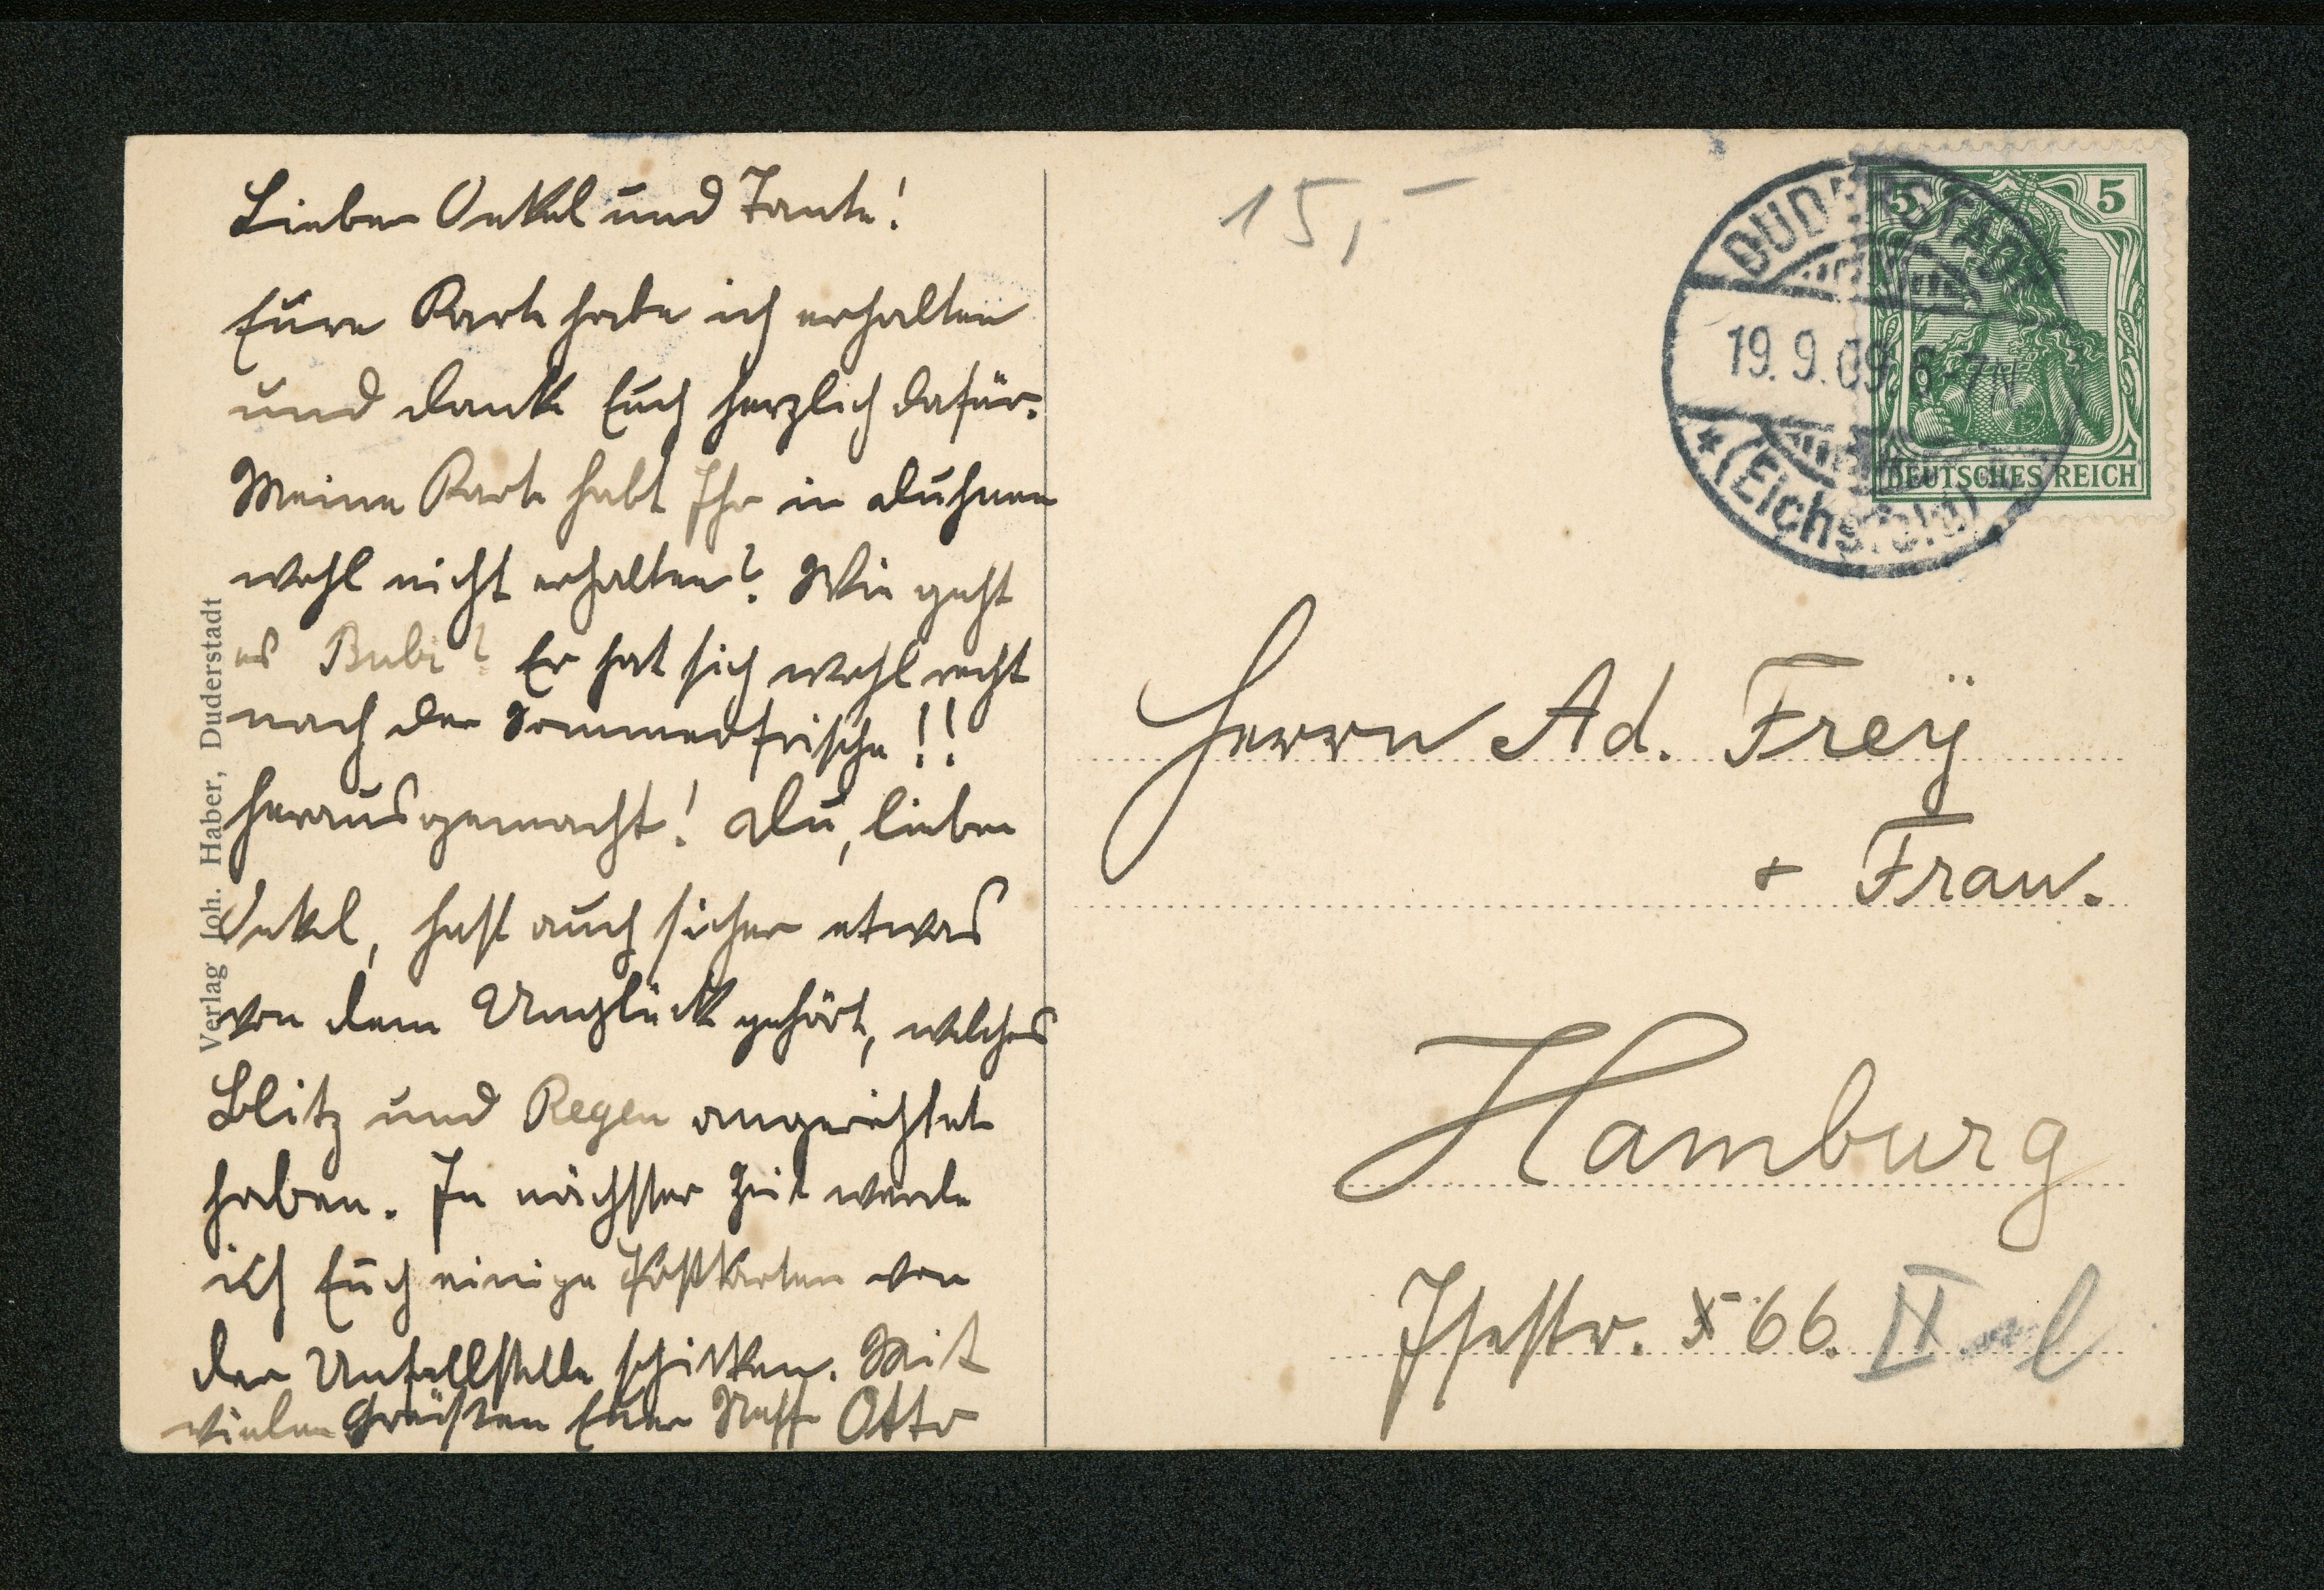 Lieber Onkel und Tante!
Eure Karte habe ich erhalten
und danke Euch herzlich dafür.
Meine Karte habt Ihr in Duhnen
wohl nicht erhalten? Wie geht
es Bubi? Er hat sich wohl recht
nach der Sommerfrische!!
herausgemacht! Du, lieber
Onkel, hast auch sicher etwas
von dem Unglück gehört, welches
Blitz und Regen angerichtet
haben. In nächster Zeit werde
ich Euch einige Postkarten von
der Unfallstelle schicken. Mit
vielen Grüßen Euer Neffe Otto
Verlag Joh. Haber, Duderstadt
15,-
DUDERSTADT
19.9.09. 6-7N.
*(Eichsfeld)
5 5
DEUTSCHES REICH
Herrn Ad. Freÿ
+ Frau.
Hamburg
Isestr. 66. II l